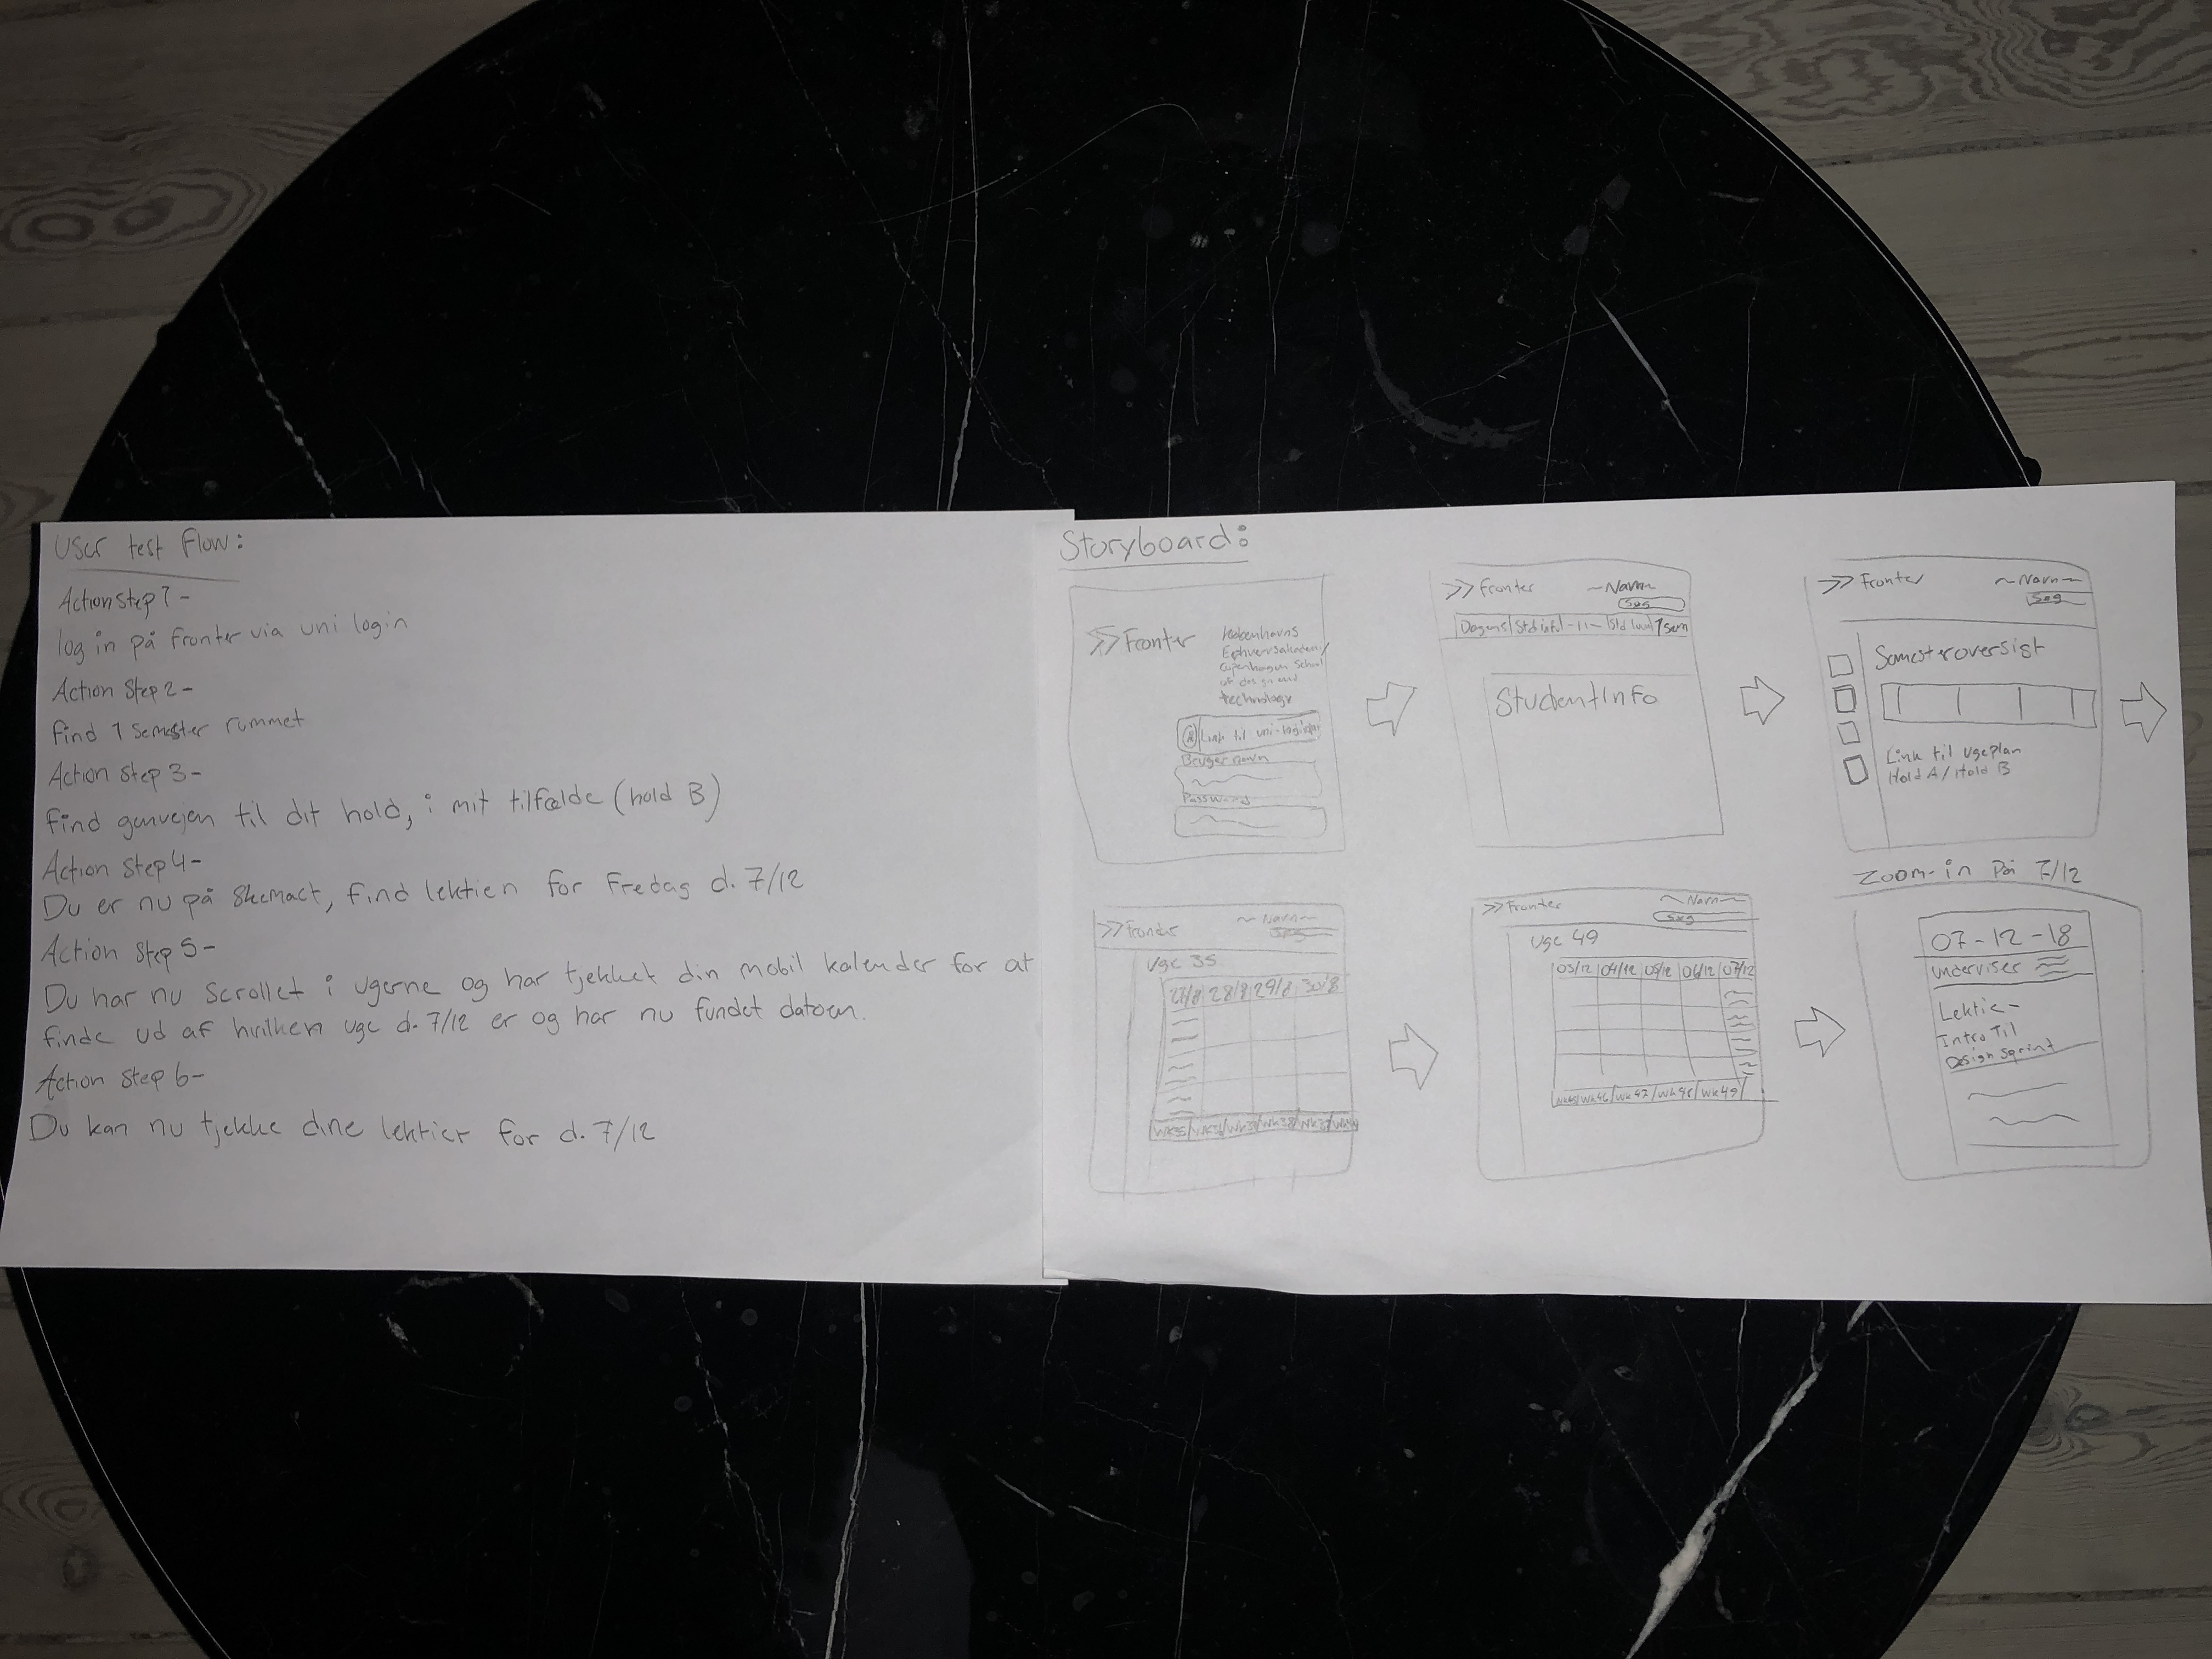 User test flow:
Action step 1-
log in på fronter via uni login
Action Step 2-
find 1 semester rummet
Action Step 3-
find genvejen til dit hold, i mit tilfælde (hold B)
Action Step 4-
Du er nu på skemaet, find lektien for Fredag d. 7/12
Action Step 5-
Du har nu scrollet i ugerne og har tjekket din mobil kalender for at
finde ud af hvilken uge d. 7/12 er og har nu fundet datoen.
Action Step 6-
Du kan nu tjekke dine lektier for d. 7/12
Storyboard:
>> Fronter
Københavns
Copenhagen School
of design and
technology
Link til uni-login
Brugernavn
Password
>> Fronter
~Navn~
Søg
Dagens | Std info | -11- | 1 sem
StudentInfo
>> Fronter
~Navn~
Søg
Semesteroversigt
Link til Ugeplan
Hold A / Hold B
>> Fronter
~Navn~
Uge 35
27/8 28/8 29/8 30/8
Wk35
>> Fronter
~Navn~
Søg
Uge 49
03/12 04/12 05/12 06/12 07/12
wk46 / wk47 / wk48 / wk49
Zoom-in På 7/12
07-12-18
Underviser
Lektie-
Intro Til
Design Sprint